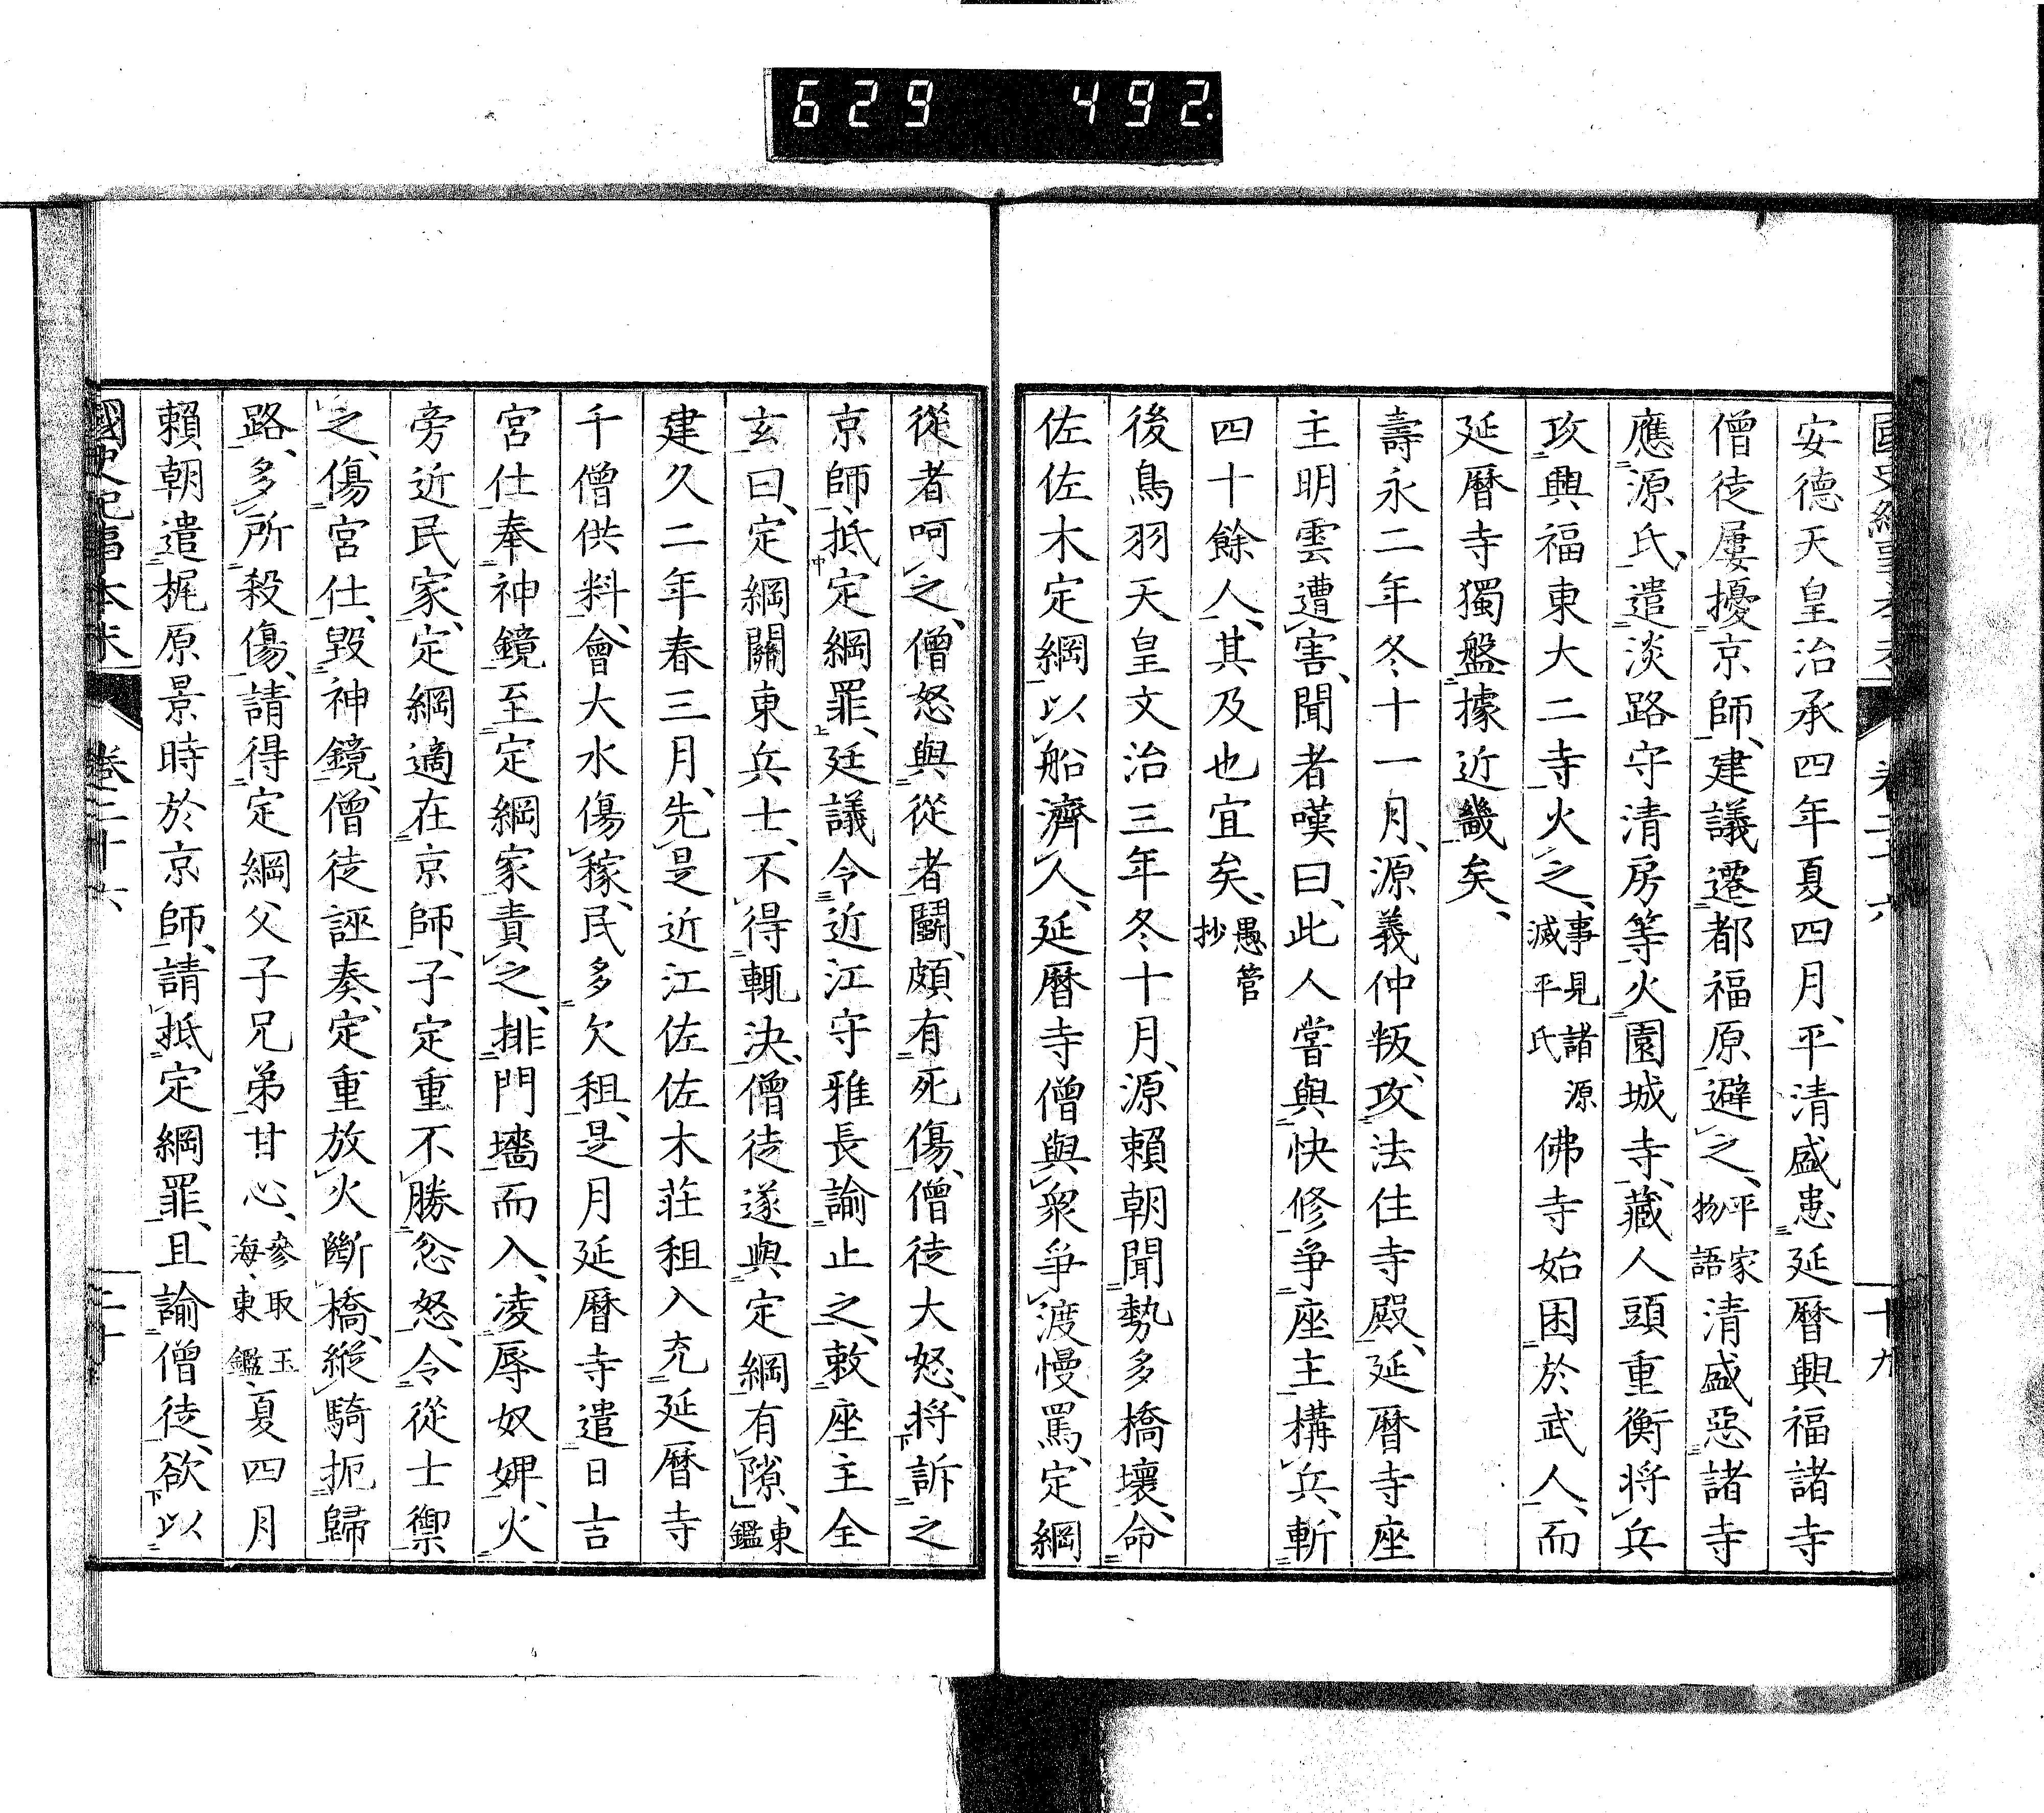 629 492
安德天皇治承四年夏四月、平清盛患延曆興福諸寺
僧徒屢擾京師、建議遷都福原避之、平家物語清盛惡諸寺
應源氏、遣淡路守清房等火園城寺、藏人頭重衡將兵
攻興福東大二寺火之、事見諸源滅平氏佛寺始困於武人、而
延曆寺獨盤據近畿矣、
壽永二年冬十一月、源義仲叛、攻法住寺殿、延曆寺座
主明雲遭害、聞者嘆曰、此人嘗與快修爭座主構兵、斬
四十餘人、其及也宜矣、愚管抄
後鳥羽天皇文治三年冬十月、源賴朝聞勢多橋壞、命
佐佐木定綱以船濟人、延曆寺僧與衆爭渡慢罵、定綱
從者呵之、僧怒與從者鬪、頗有死傷、僧徒大怒、將訴之
京師、抵定綱罪、廷議令近江守雅長諭止之、敕座主全
玄曰、定綱關東兵士、不得輒決、僧徒遂與定綱有隙、東鑑
建久二年春三月、先是近江佐佐木莊租入充延曆寺
千僧供料、會大水傷稼、民多欠租、是月延曆寺遣日吉
宮仕奉神鏡至定綱家責之、排門墻而入、凌辱奴婢、火
旁近民家、定綱適在京師、子定重不勝忿怒、令從士禦
之、傷宮仕、毀神鏡、僧徒誣奏、定重放火斷橋、縱騎扼歸
路、多所殺傷、請得定綱父子兄弟甘心、參取玉海、東鑑夏四月
賴朝遣梶原景時於京師、請抵定綱罪、且諭僧徒、欲以
國史紀事本末 卷二十六 二十